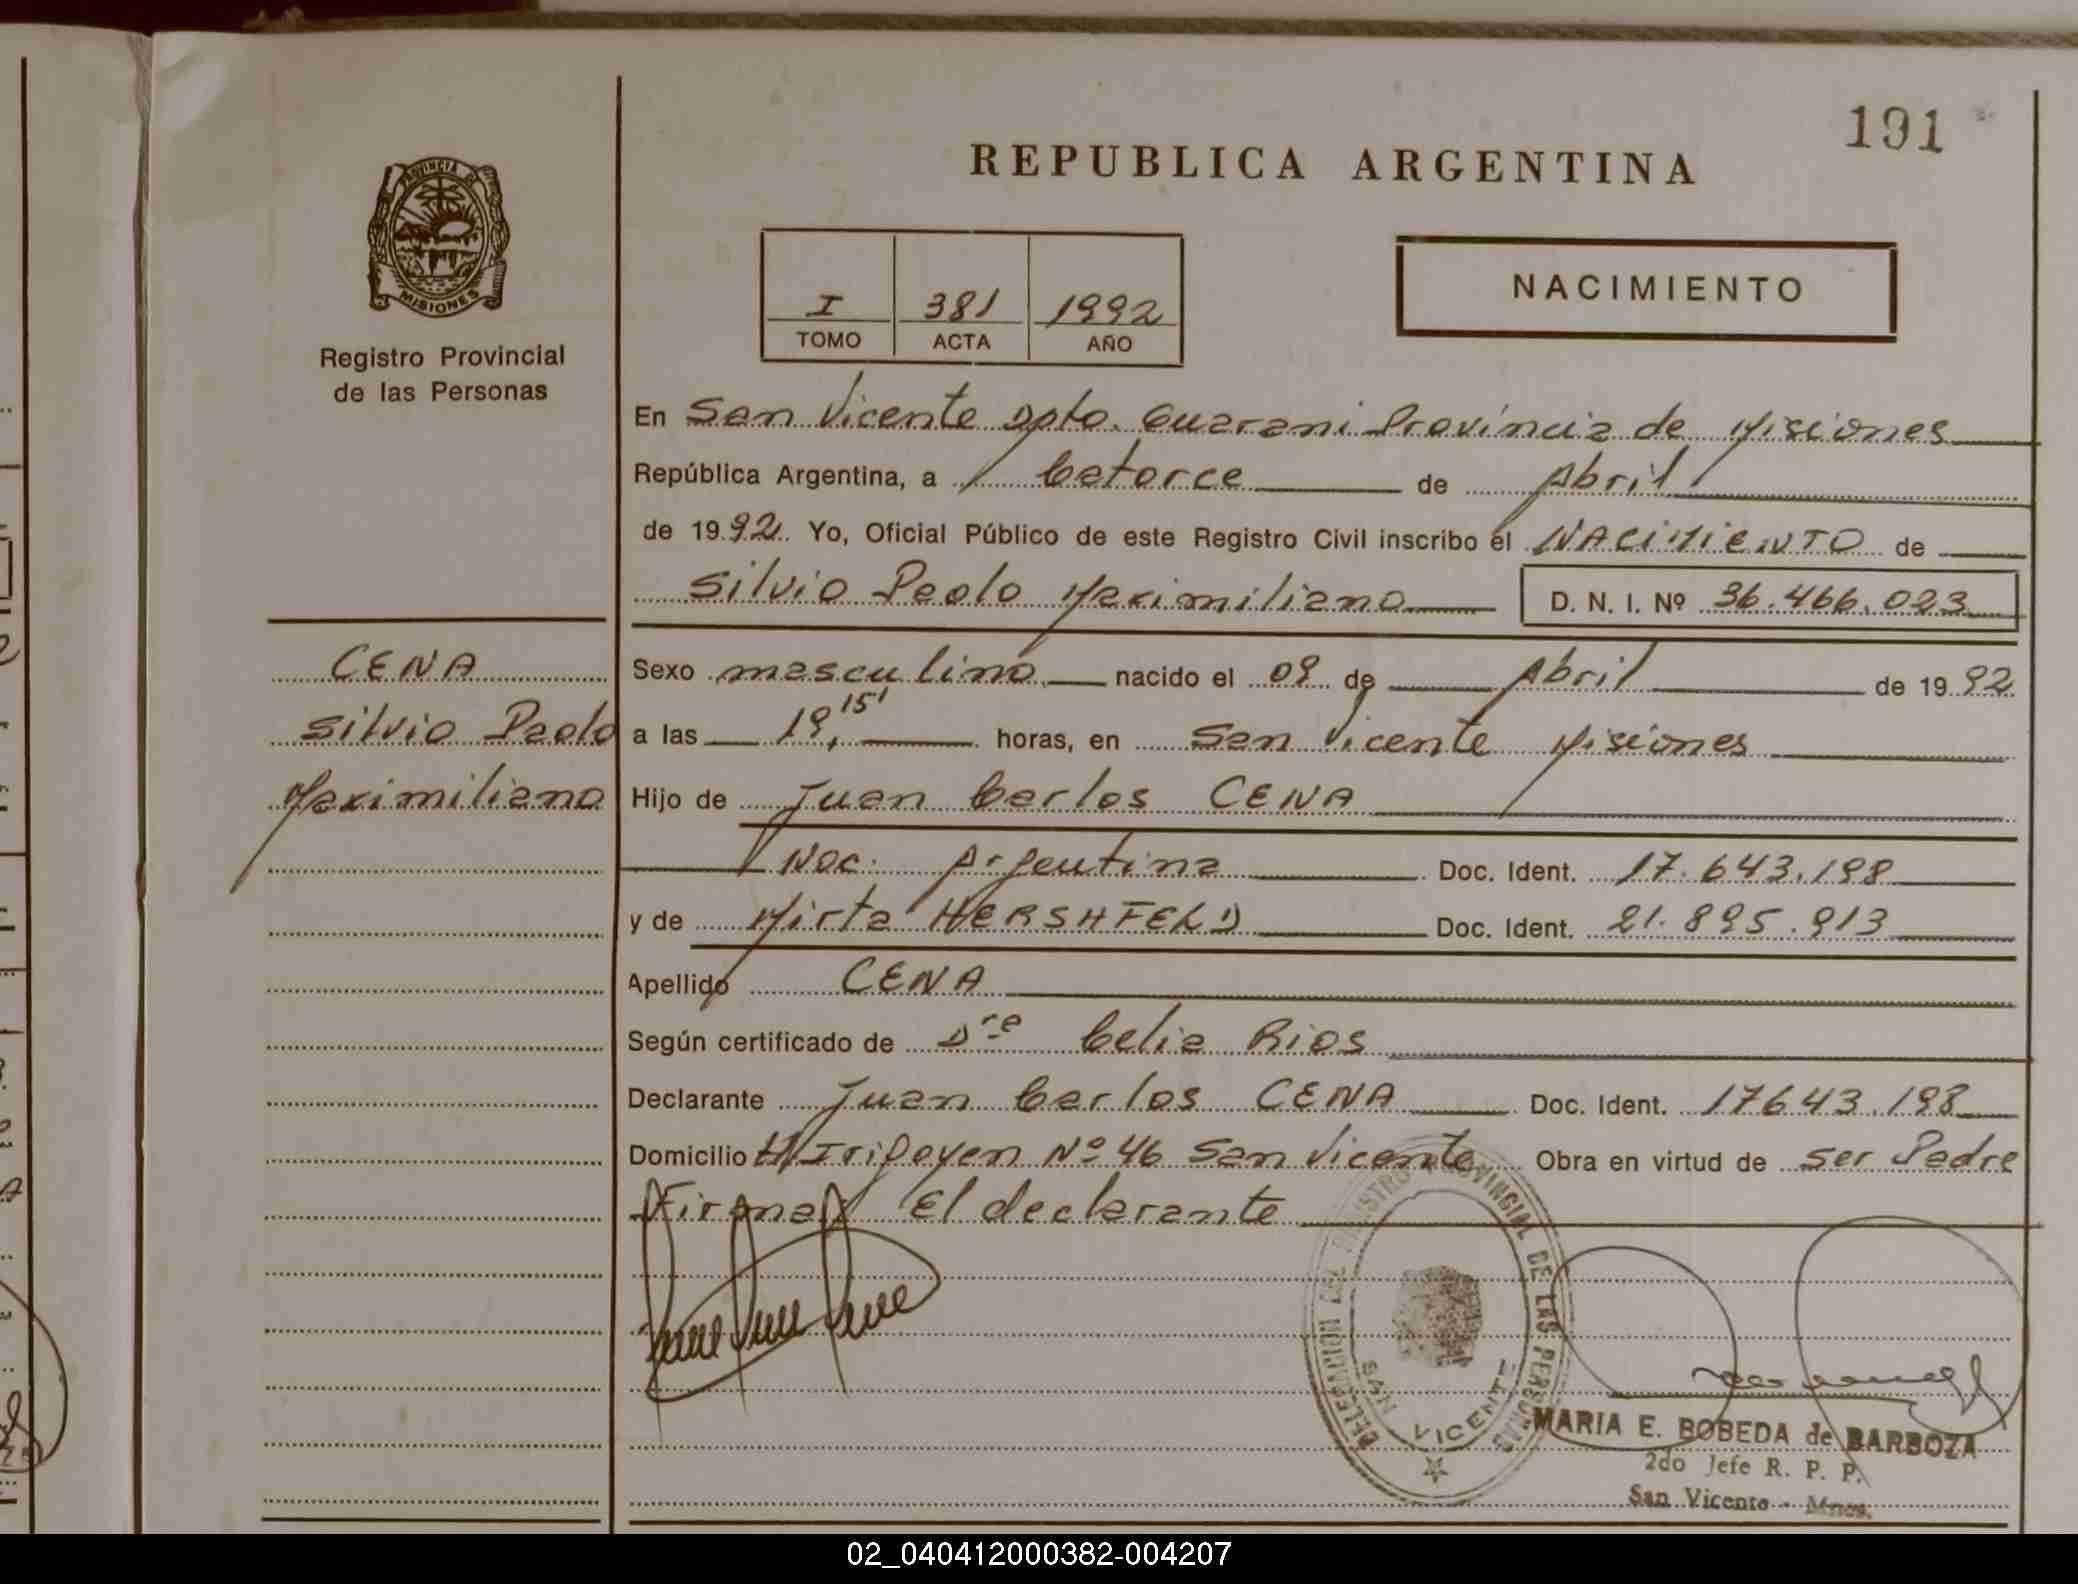 191
REPUBLICA ARGENTINA
PROVINCIA DE
MISIONES
Registro Provincial
de las Personas
NACIMIENTO
I 381 1992
TOMO ACTA AÑO
En San Vicente Dpto. Guarani Provincia de Misiones
República Argentina, a Catorce de Abril
de 1992. Yo, Oficial Público de este Registro Civil inscribo el NACIMIENTO de
Silvio Paolo Maximiliano D. N. I. Nº 36.466.023
CENA
Silvio Paolo
Maximiliano
Sexo masculino nacido el 09 de Abril de 1992
a las 19,15' horas, en San Vicente Misiones
Hijo de Juan Carlos CENA
Nac. Argentina Doc. Ident. 17.643.198
y de Mirta HERSHFELD Doc. Ident. 21.895.913
Apellido CENA
Según certificado de Dra Celia Rios
Declarante Juan Carlos CENA Doc. Ident. 17643.198
Domicilio H Irigoyen Nº 46 San Vicente Obra en virtud de ser Padre
Firma El declarante
DELEGACION DEL REGISTRO PROVINCIAL DE LAS PERSONAS
SAN VICENTE
MARIA E. BOBEDA de BARBOZA
2do Jefe R. P. P.
San Vicente - Mnes.
02_040412000382-004207